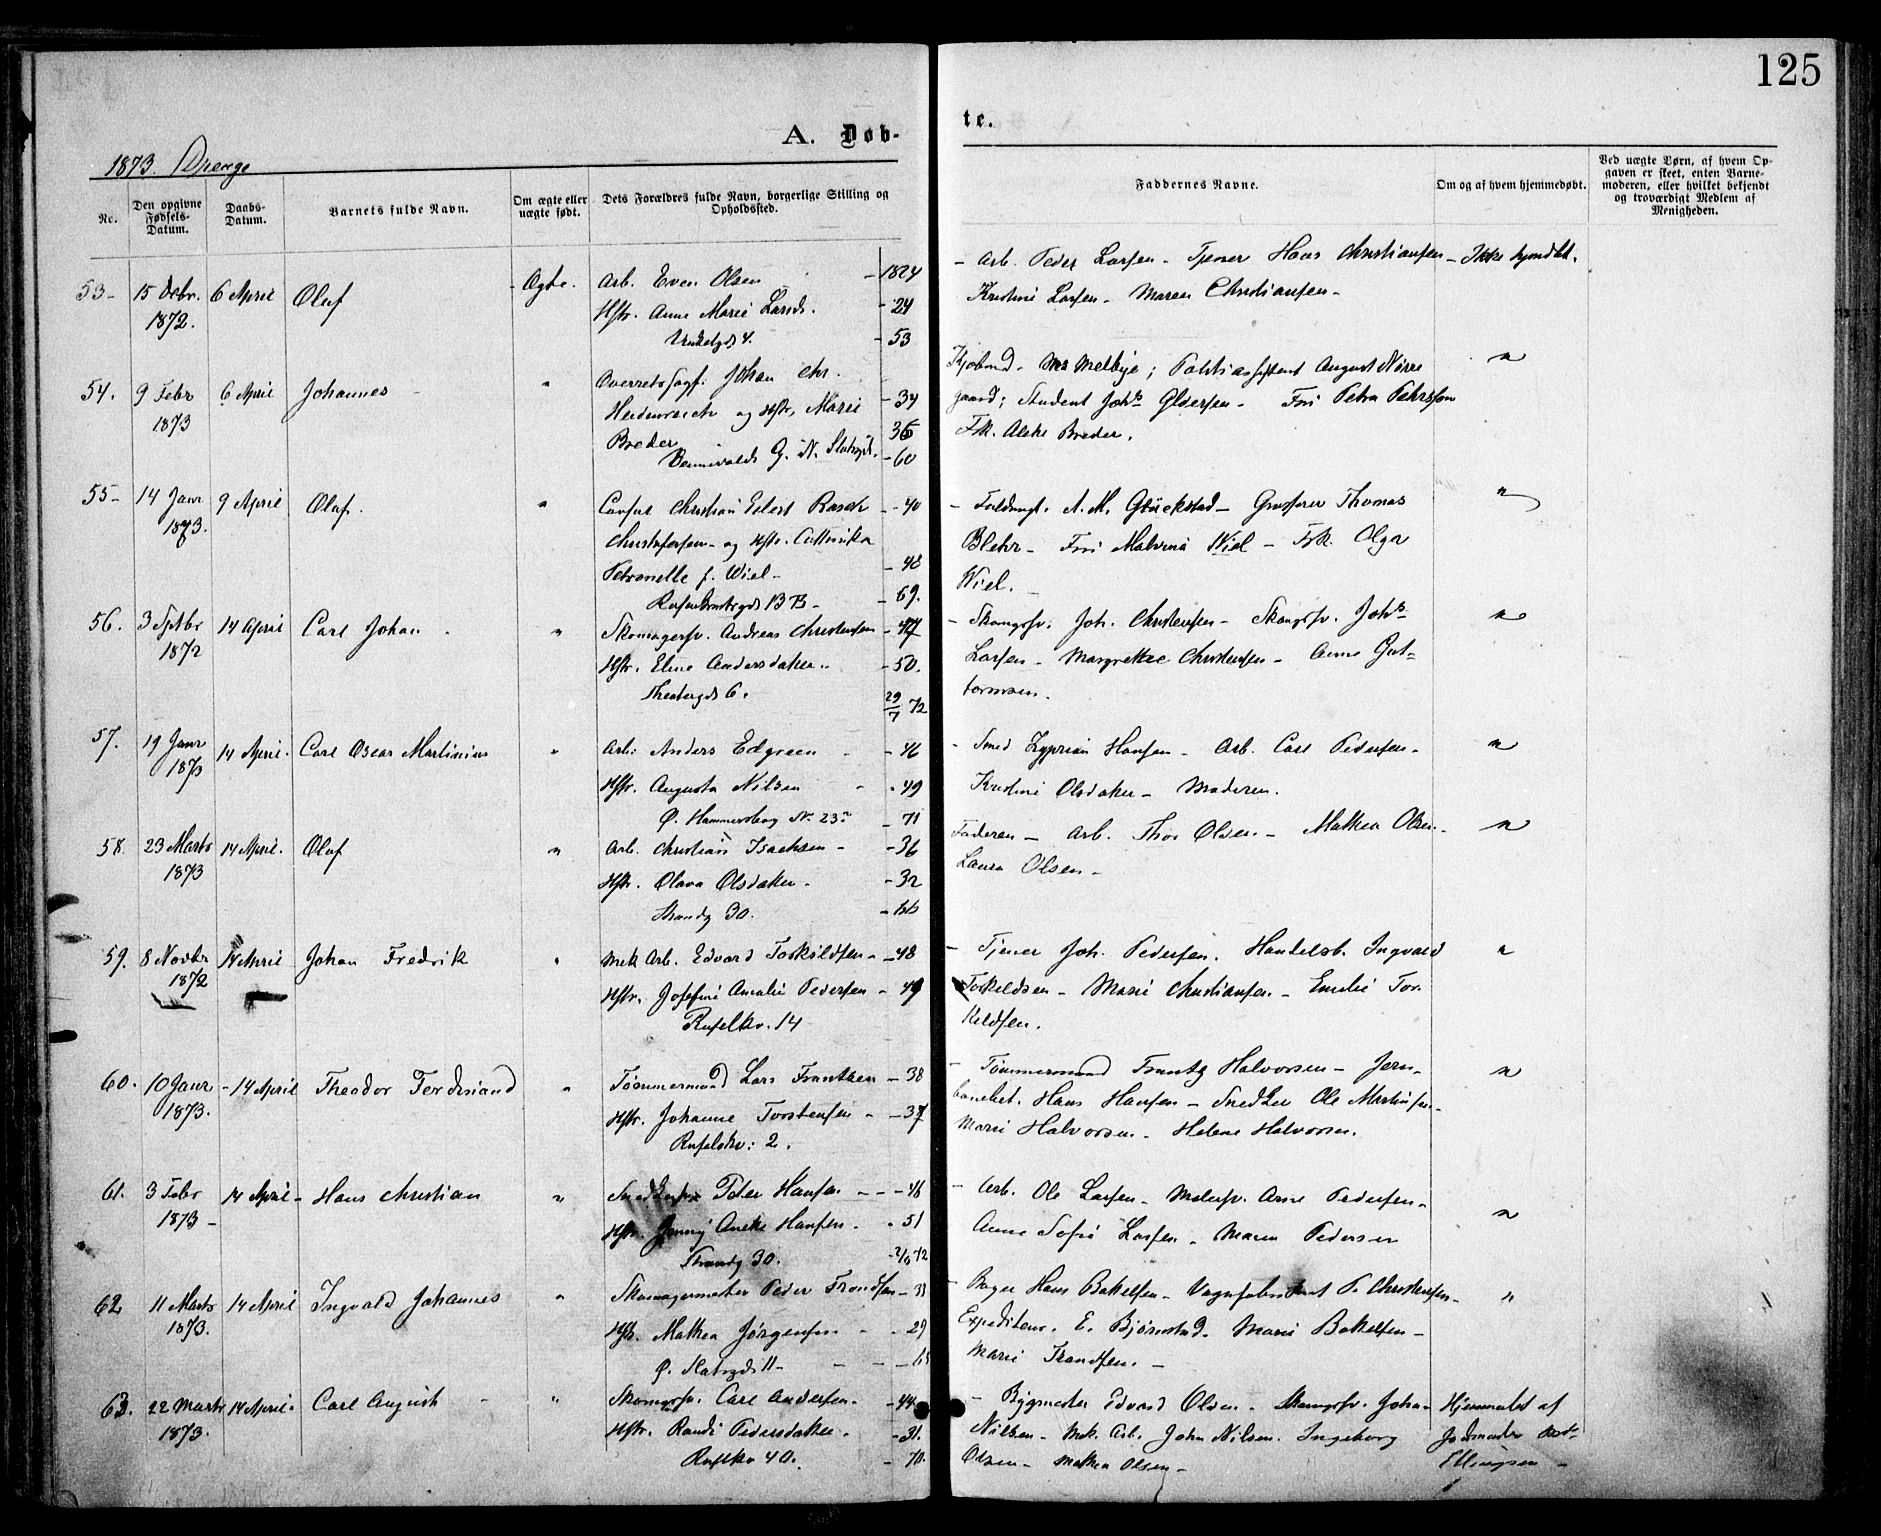 125
A. Døb-
te.
1873. Drenge
No.
Den opgivne Fødsels-Datum.
Daabs-Datum.
Barnets fulde Navn.
Om ægte eller uægte født.
Dets Forældres fulde Navn, borgerlige Stilling og Opholdssted.
Faddernes Navne.
Om og af hvem hjemmedøbt.
Ved uægte Børn, af hvem Opgaven er skeet, enten Barnemoderen, eller hvilket bekjendt og troværdigt Medlem af Menigheden.
53- 15 Dcbr. 6 April Oluf - Ægte. Arb. Even Olsen - 1824
1872. Hstr. Anne Marie Larsd. - 24
4. - 53
- Arb. Peder Larsen - Tjener Hans Christiansen - Ikke hjmdbt.
Kristine Larsen - Maren Christiansen -
54. 9 Febr 6 April Johannes - " Overretssagf. Johan Chr.
1873 Heidenreich og Hstr. Marie - 34
Breder 36
G. N. Slotsgd. - 60
Kjøbmd. - Melbye; Politiassistent August Nørre
gaard; Student Johs Olsersen - Petra Pehrsson
Frk. Breder. "
55- 14 Janr 9 April Olaf. " Christian Eilert Rasch - 40
1873. Christofersen - og Hstr.
Petronelle f. Wiel - - 48
13 B - - 69.
- Fuldmgt. A. M. Glückstad - Grosserer Thomas "
Blehr - Malvina Wiel - Frk. Olga
Wiel.
56. 3 Sptbr 14 April Carl Johan - " Skomagersv. Andreas Christensen - 47
1872 Hstr. Eline Andersdatter. - 50.
Theatergd 6. 29/7 72
- Skomgrsv. Joh. Christensen - Skomgrsv. Johs "
Larsen - Margrethe Christensen - Anne Gut=
tormsen.
57. 19 Janr 14 April. Carl Oscar Martinius " Arb. Anders Edgreen - 46
1873 Hstr. Augusta Nilsen - 49
Ø. Hammersborg N. 23 - 71
- Smed Zyprian Hansen - Arb. Carl Pedersen - "
Kristine Olsdatter - Moderen.
58 23 Marts 14 April. Oluf " Arb. Christian Isachsen - - 36
1873 Hstr. Olava Olsdatter. - 32
Strandg 30. - 66
Faderen - Arb. Thor Olsen - Mathea Olsen - "
Laura Olsen -
59. 8 Novbr 14 April Johan Fredrik " Mek Arb. Edvard Torkildsen - - 48
1872 Hstr. Josefine Amalie Pedersen - 49
14
- Tjener Joh. Pedersen. Handelsb. Ingvald "
Torkildsen - Marie Christiansen - Emilie Tor
kildsen.
60. 10 Janr - 14 April Theodor Ferdinand " Tømmermand Lars Frantzen - 38
1873. Hstr. Johanne Torstensen - - 37
2.
- Tømmermand Frantz Halvorsen - Jern- "
banebet. Hans Hansen - Snedker Ole Martinsen -
Marie Halvorsen - Helene Halvorsen.
61. 3 Febr 14 April - Hans Christian " Peter Hansen - - - 46
1873 - Hstr. Jenny Hansen - 51
Strandg 30. 72
- Arb. Ole Larsen - Malersv. Arne Pedersen -
Anne Sofie Larsen - Maren Pedersen "
62 11 Marts 14 April Ingvald Johannes " Skomagermester Peder Trondsen -
1873. Hstr. Mathea Jørgensen - 29
Ø. Slotsgd 11 -
- Bager Hans Bakelsen - Vognfabrikant P. Christensen - "
Expediteur. E. Bjørnstad - Marie Bakelsen -
Marie Trondsen. -
63. 22 Marts 14 April. Carl August - " Skomgrsv. Carl Andersen. - 44
1873. Hstr. Randi Pedersdatter. - 31.
40. - 70.
- Bygmester Edvard Olsen. Skomgrsv. Johan Hjemmedbt af
Nilsen - Mek. Arb. John Nilsen. Ingeborg Jordmoder
Olsen - Mathea Olsen - Ellingsen -